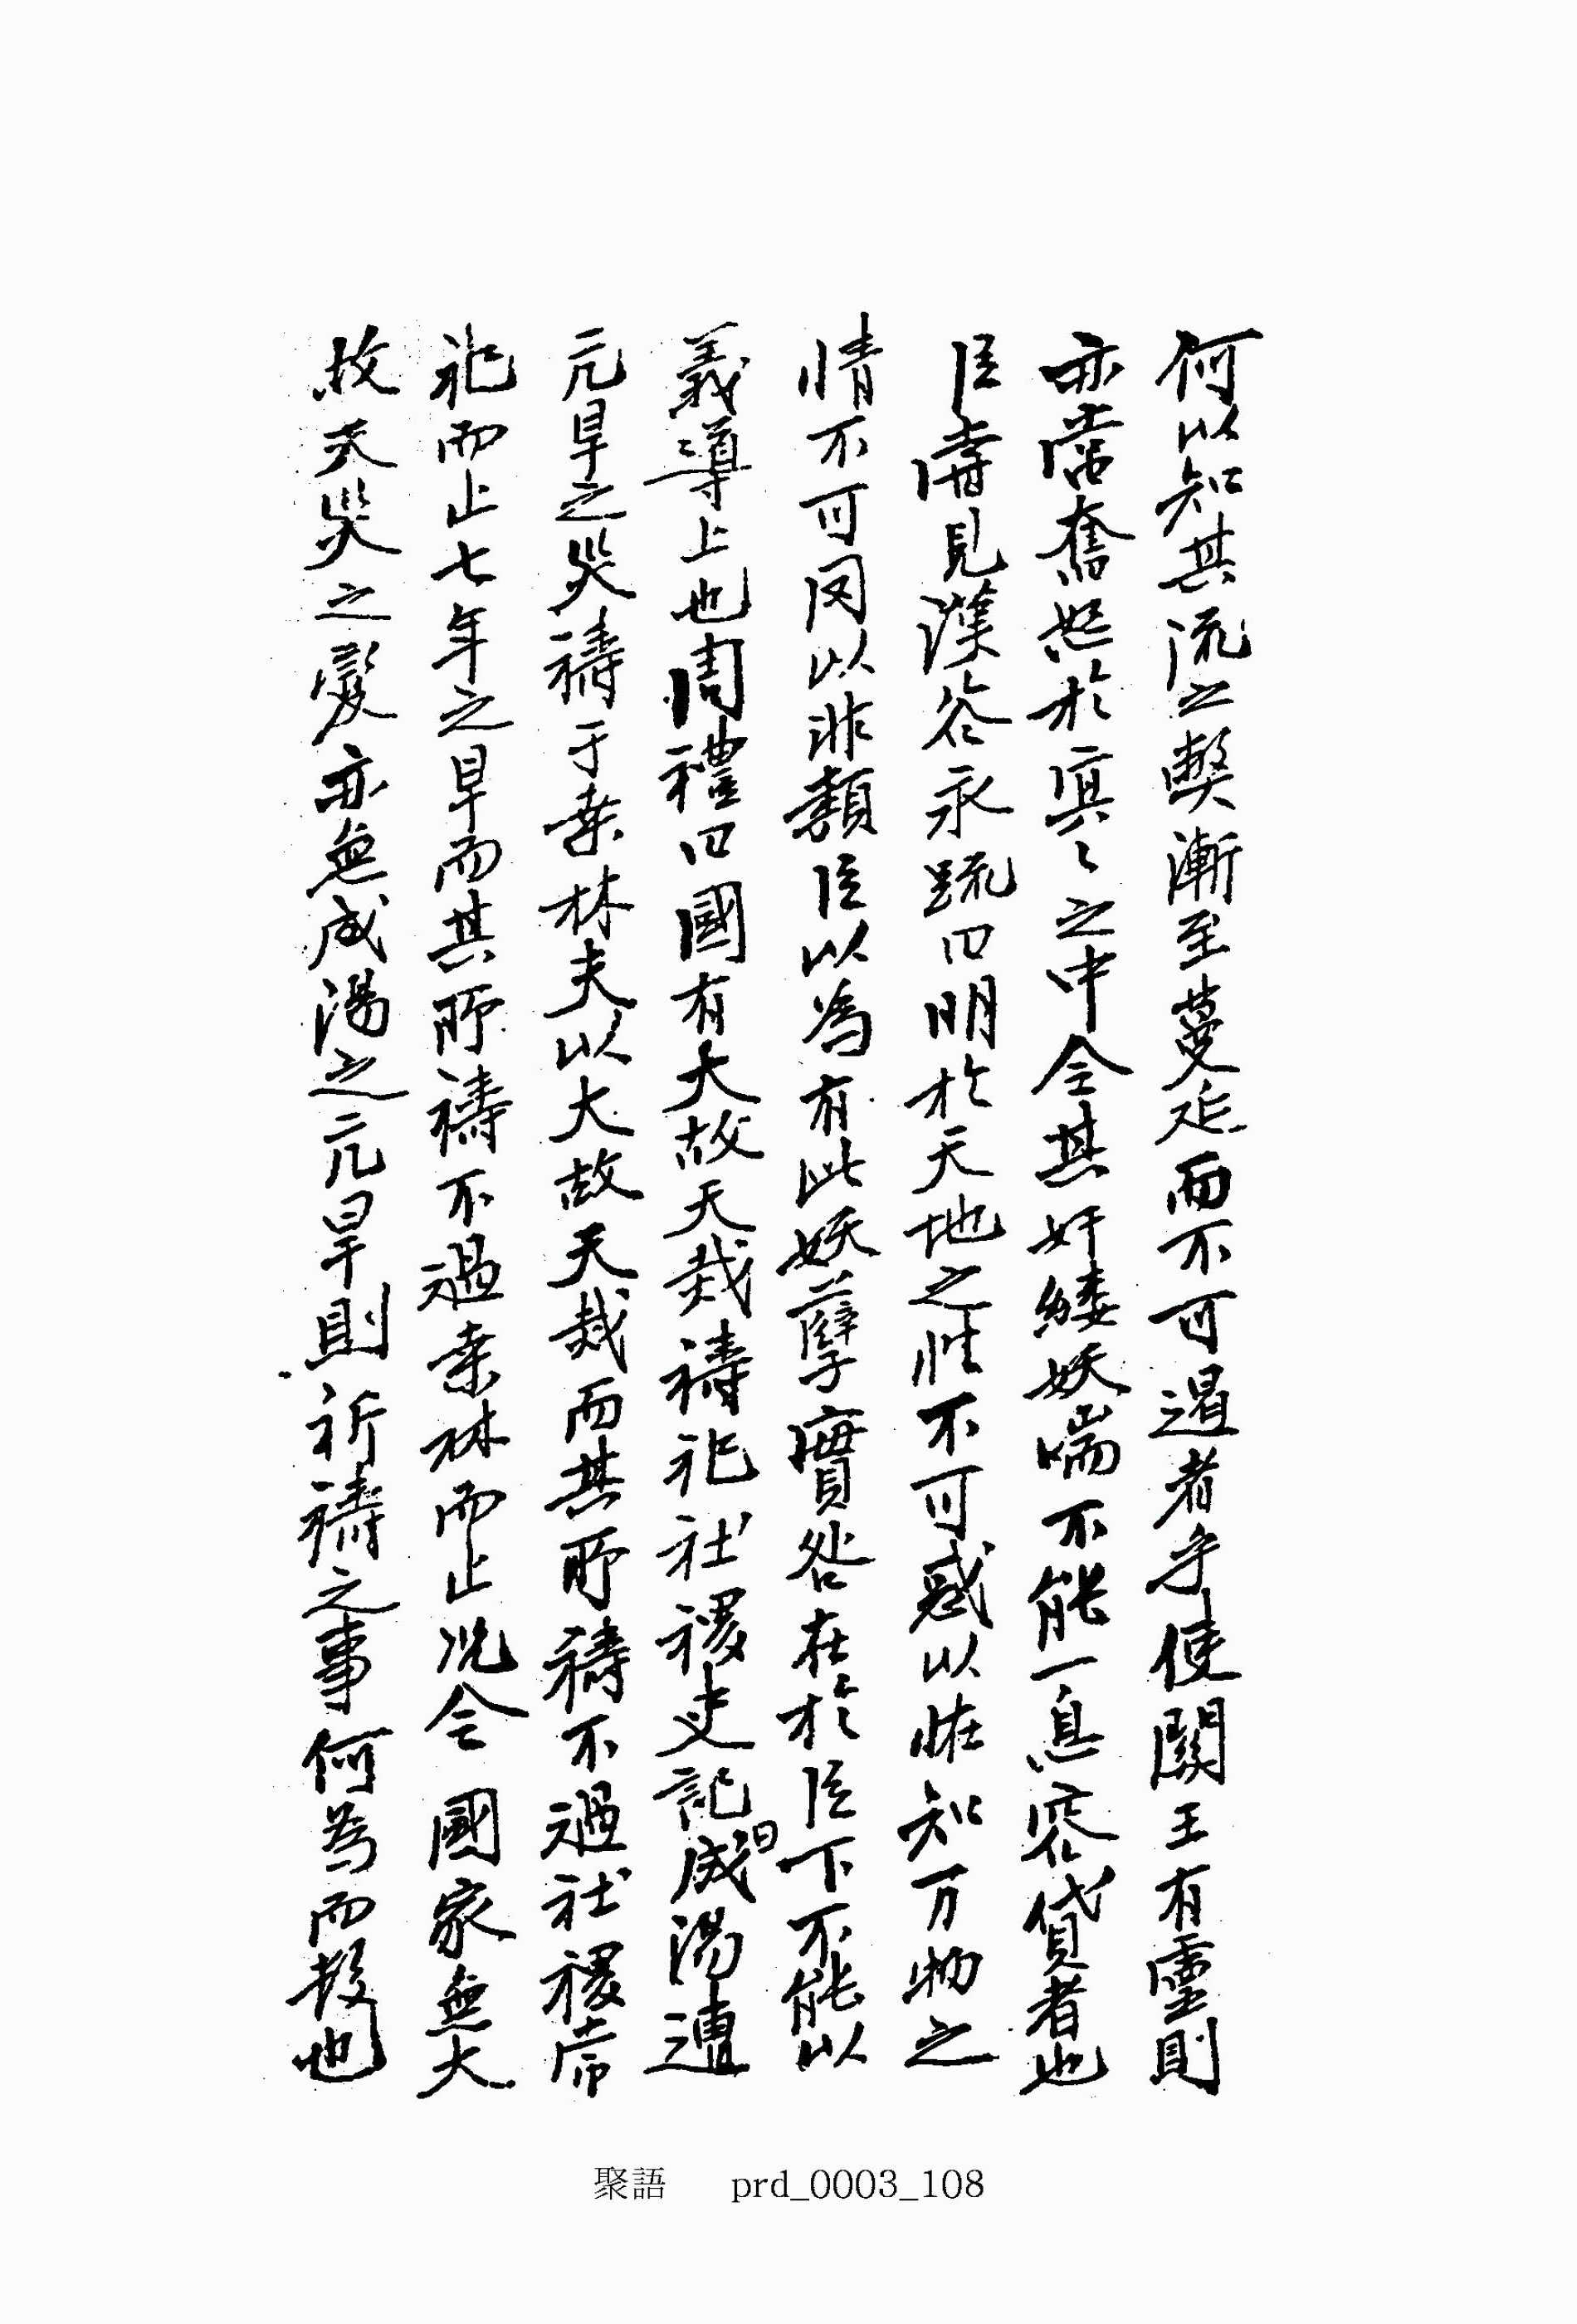 何以知其流之獘漸至蔓延而不可遏者乎使關王有靈則
亦當奮怒於冥〻之中令其奸縷妖喘不能一息容貸者也
臣嘗見漢谷永䟽曰明於天地之性不可惑以恠知万物之
情不可罔以非類臣以爲有此妖孽實咎在於臣下不能以
義導上也周禮曰國有大故天烖禱祀社稷史記曰成湯遭
亢旱之災禱于桒林夫以大故天烖而其所禱不過社稷常
祀而止七年之旱而其所禱不過桒林而止况今國家無大
故天災之變亦無成湯之亢旱則祈禱之事何為而設也
聚語 prd_0003_108